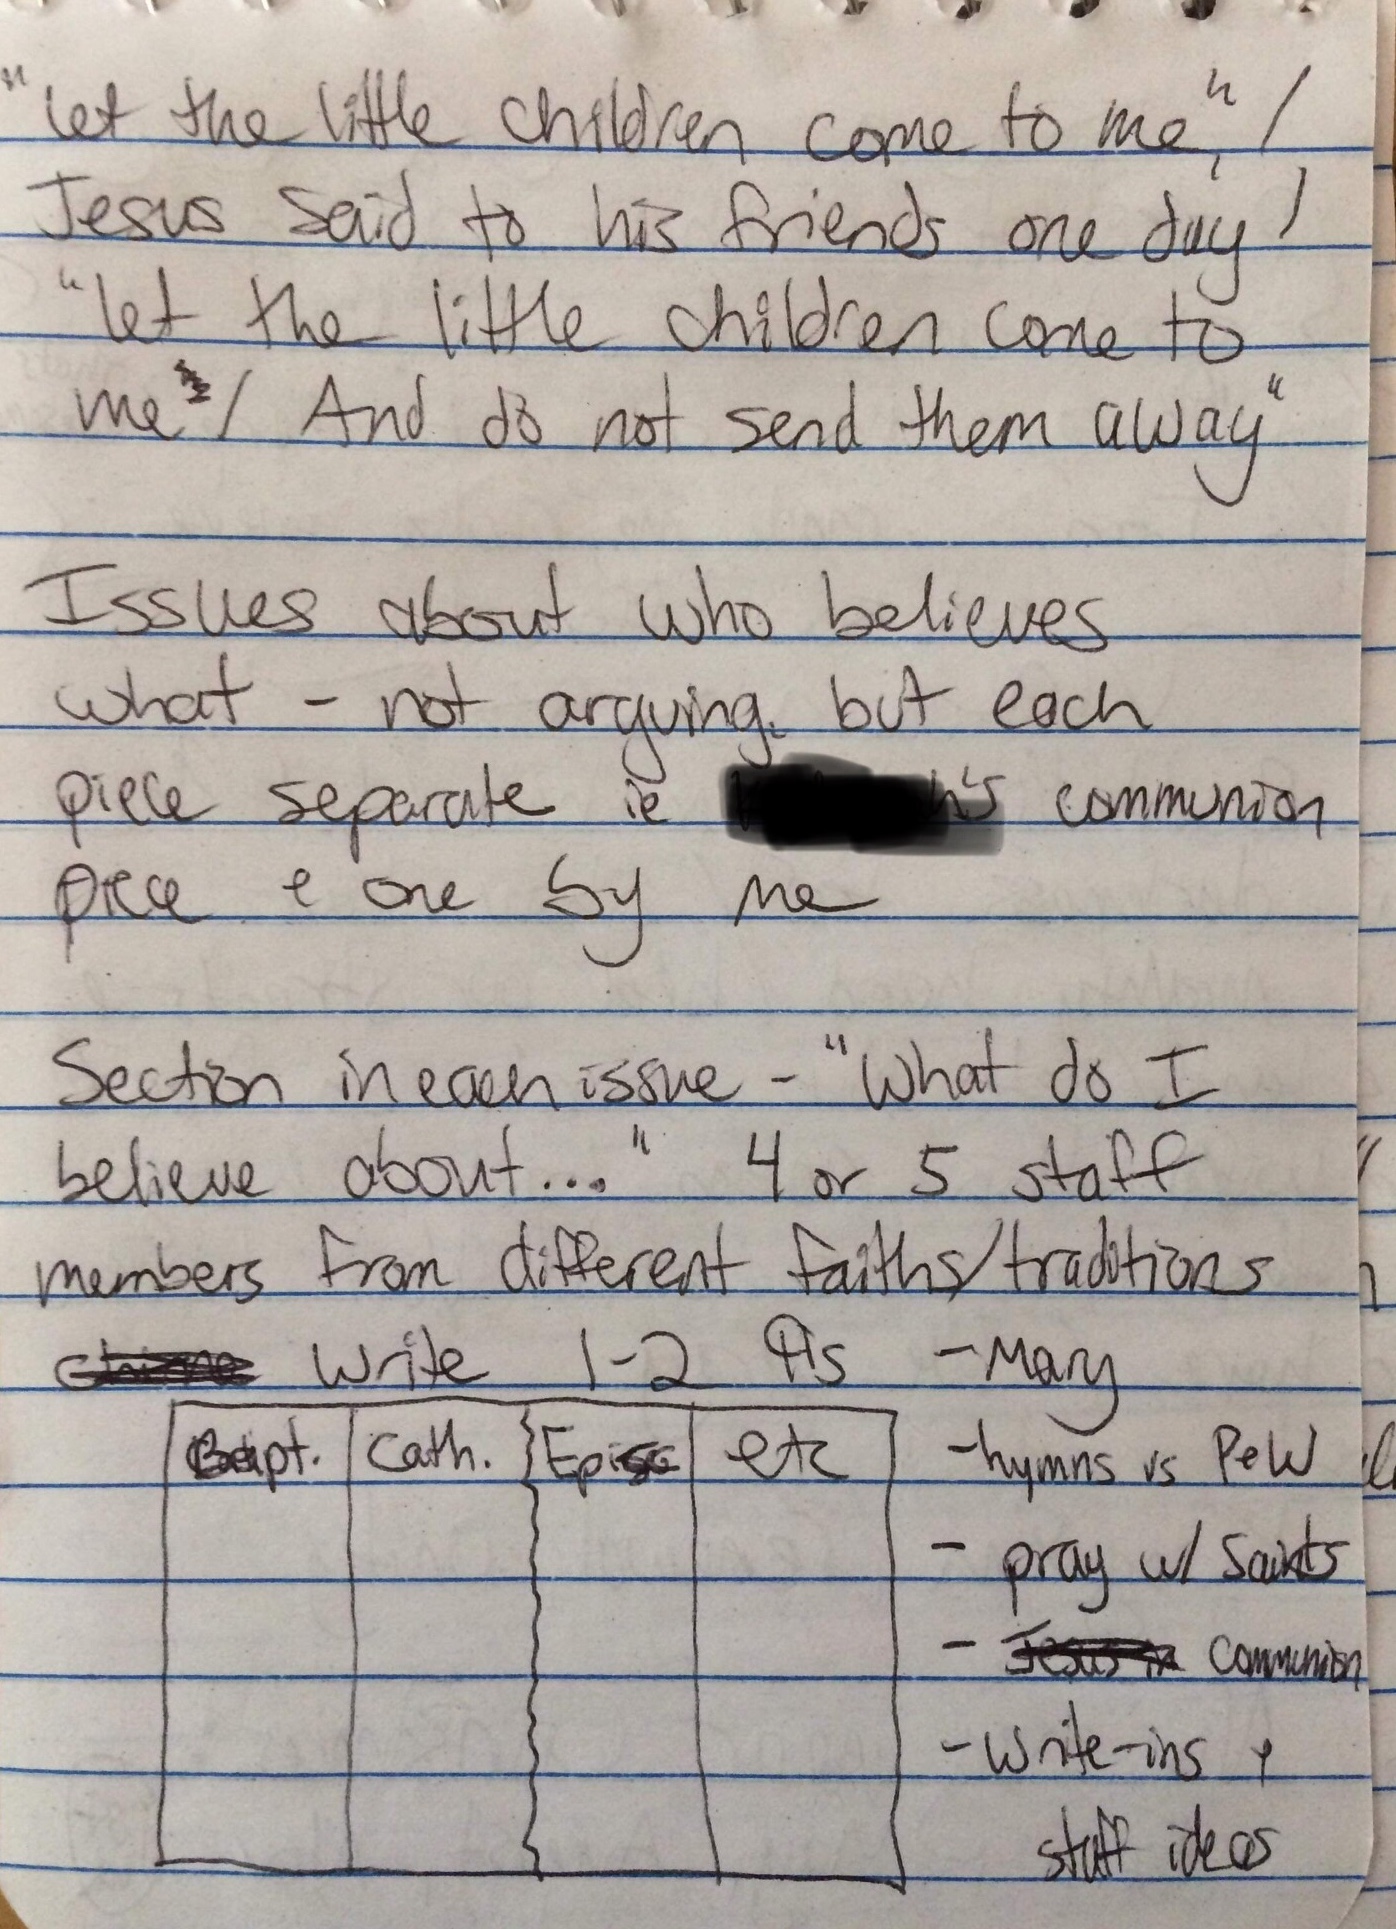 "let the little children come to me," /
Jesus said to his friends one day /
"let the little children come to
me" / And do not send them away"
Issues about who believes
what - not arguing, but each
piece separate ie h's communion
piece + one by me
Section in each issue - "What do I
believe about..." 4 or 5 staff
members from different faiths/traditions
write 1-2 ¶s - Mary
Bapt. Cath. Episc etc
- hymns vs P&W
- pray w/ Saints
- Jesus in communion
- write-ins +
staff ideas